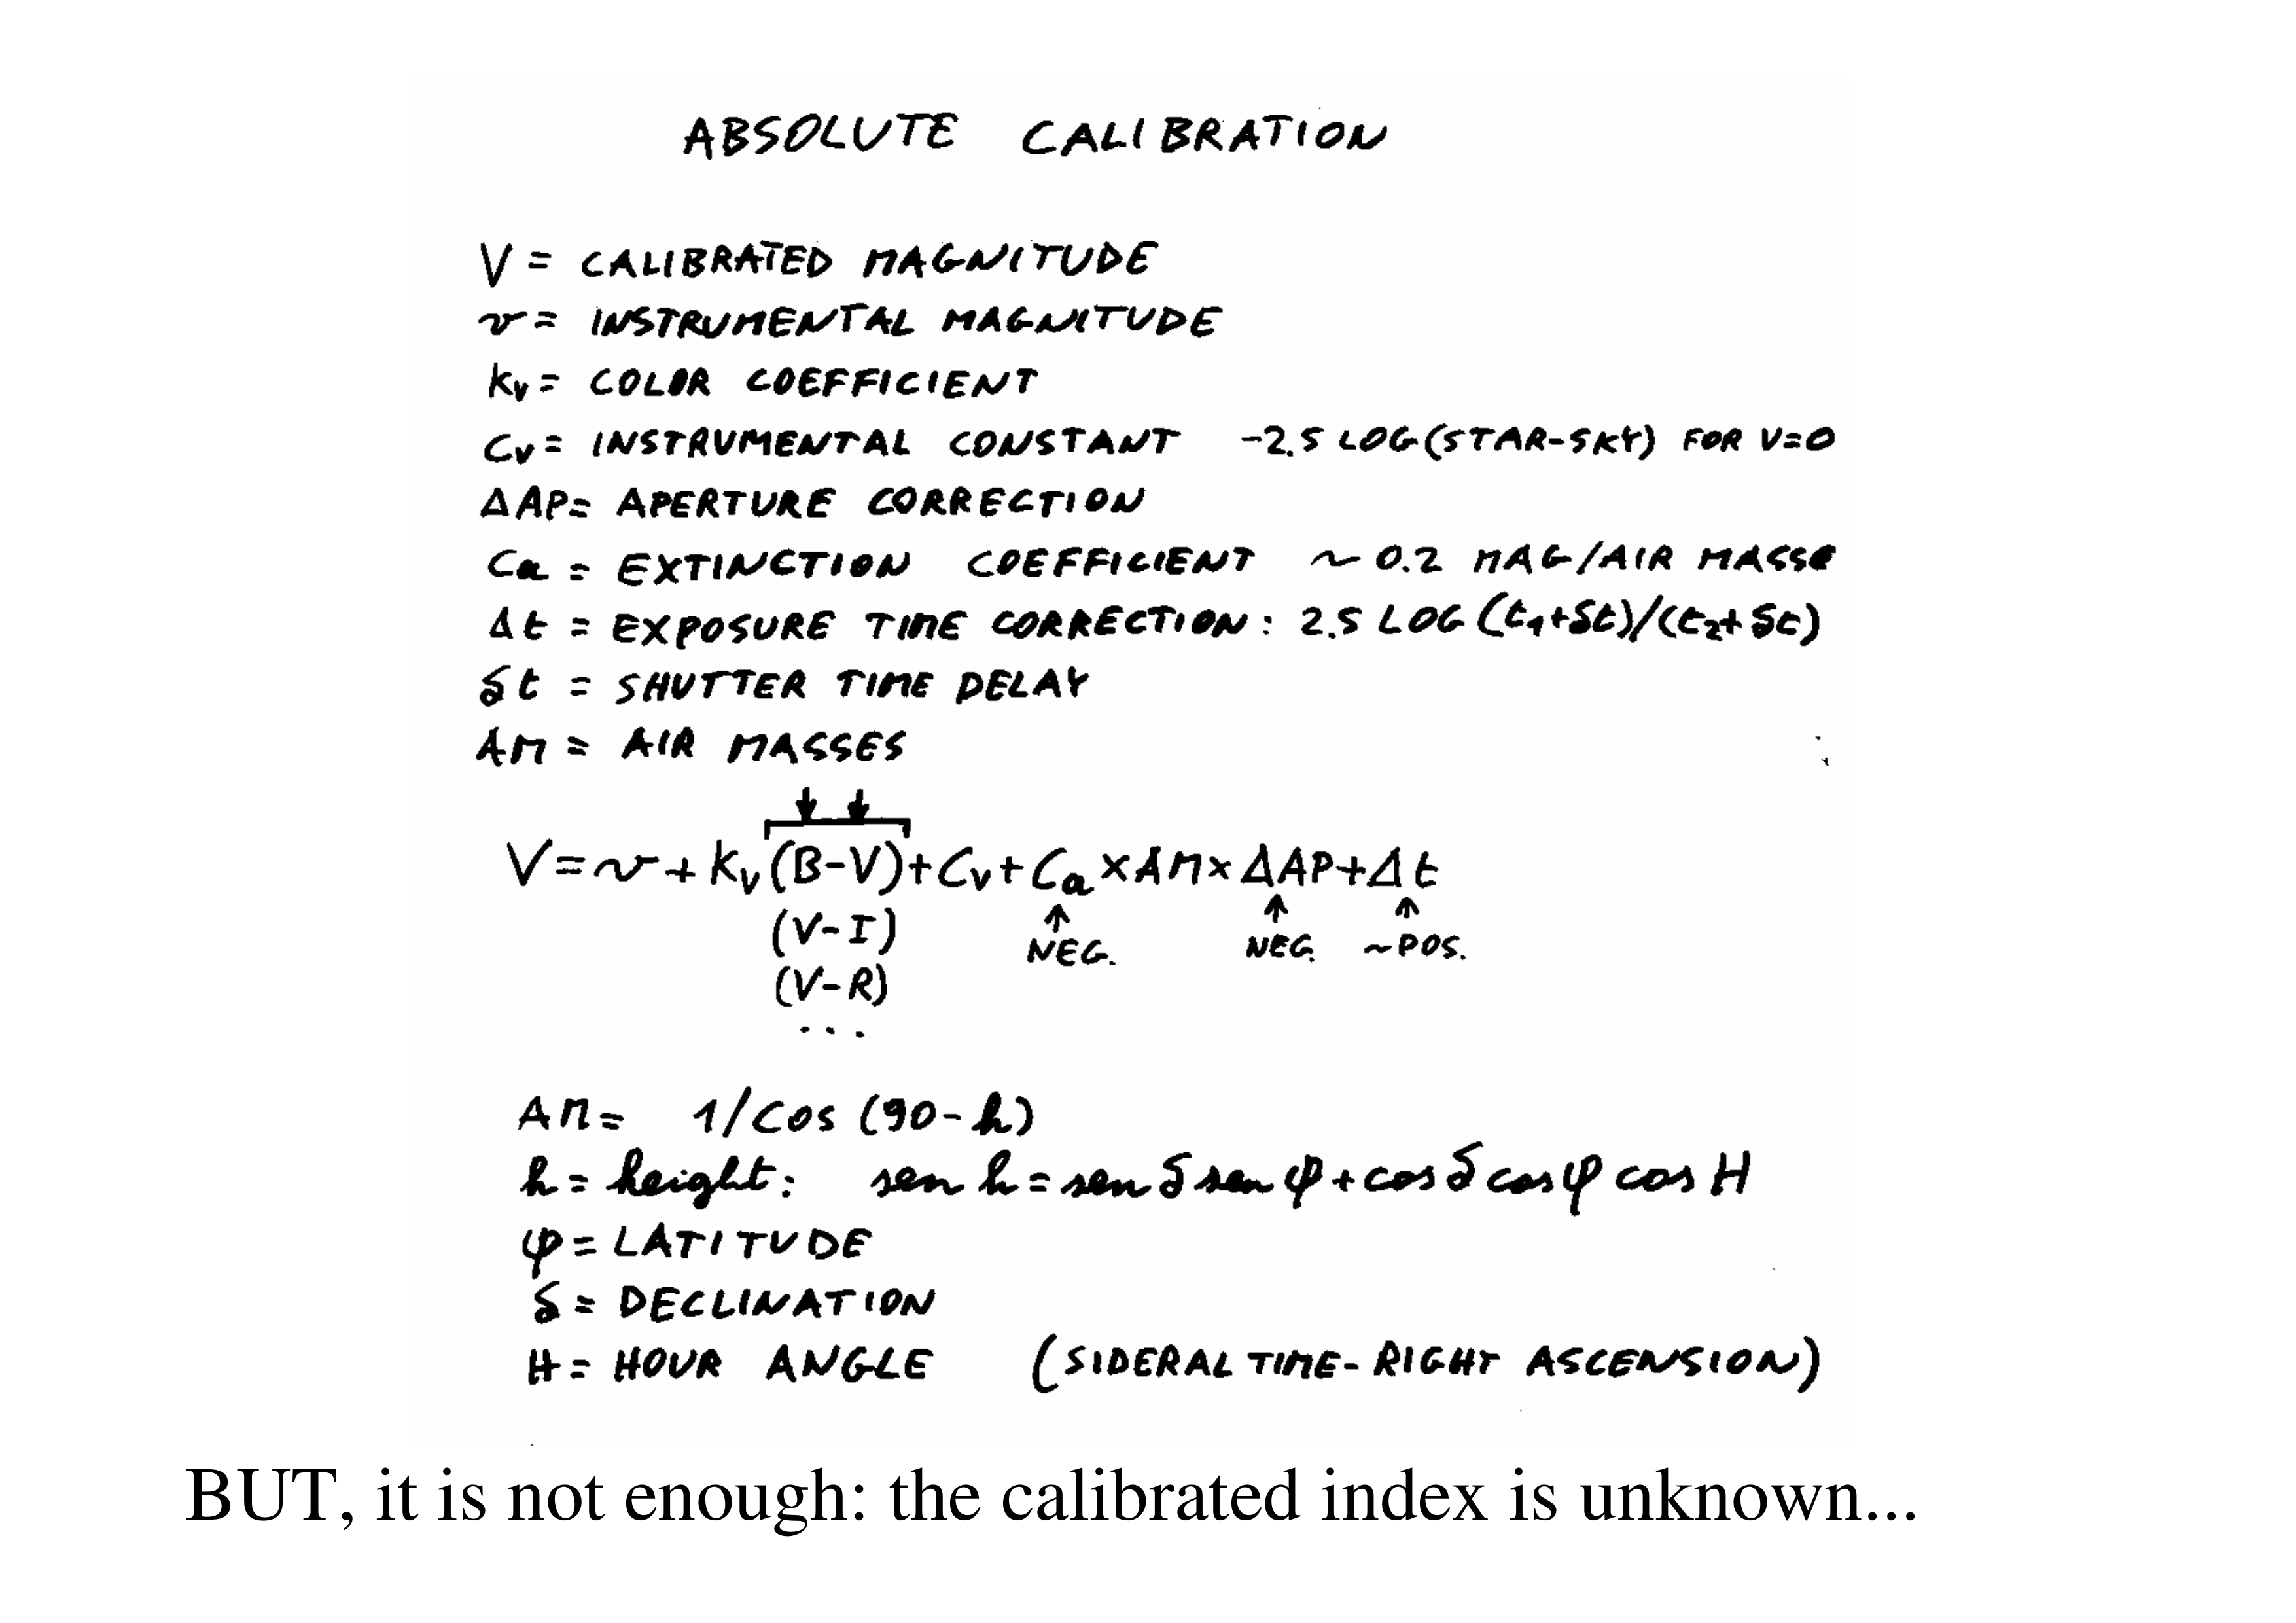 ABSOLUTE CALIBRATION
V = CALIBRATED MAGNITUDE
v = INSTRUMENTAL MAGNITUDE
kv = COLOR COEFFICIENT
Cv = INSTRUMENTAL CONSTANT -2.5 LOG(STAR-SKY) FOR V=0
ΔAP= APERTURE CORRECTION
Ca = EXTINCTION COEFFICIENT ~ 0.2 MAG/AIR MASSE
Δt = EXPOSURE TIME CORRECTION: 2.5 LOG (t1+δt)/(t2+δt)
δt = SHUTTER TIME DELAY
AM = AIR MASSES
↓ ↓
V=v+kv(B-V)+Cv+Ca×AM×ΔAP+Δt
↑ ↑ ↑
(V-I) NEG. NEG. ~POS.
(V-R)
...
AM= 1/cos (90-h)
h = height: sen h = sen δ sen φ + cos δ cos φ cos H
φ = LATITUDE
δ = DECLINATION
H = HOUR ANGLE (SIDERAL TIME-RIGHT ASCENSION)
BUT, it is not enough: the calibrated index is unknown...